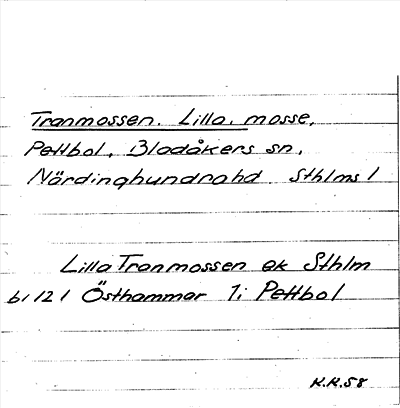 Tranmossen, Lilla, mosse,
Pettbol, Bladåkers sn,
Närdinghundrahd Sthlms l
Lilla Tranmossen ek Sthlm
bl 121 Östhammar 1; Pettbol
K.K.58